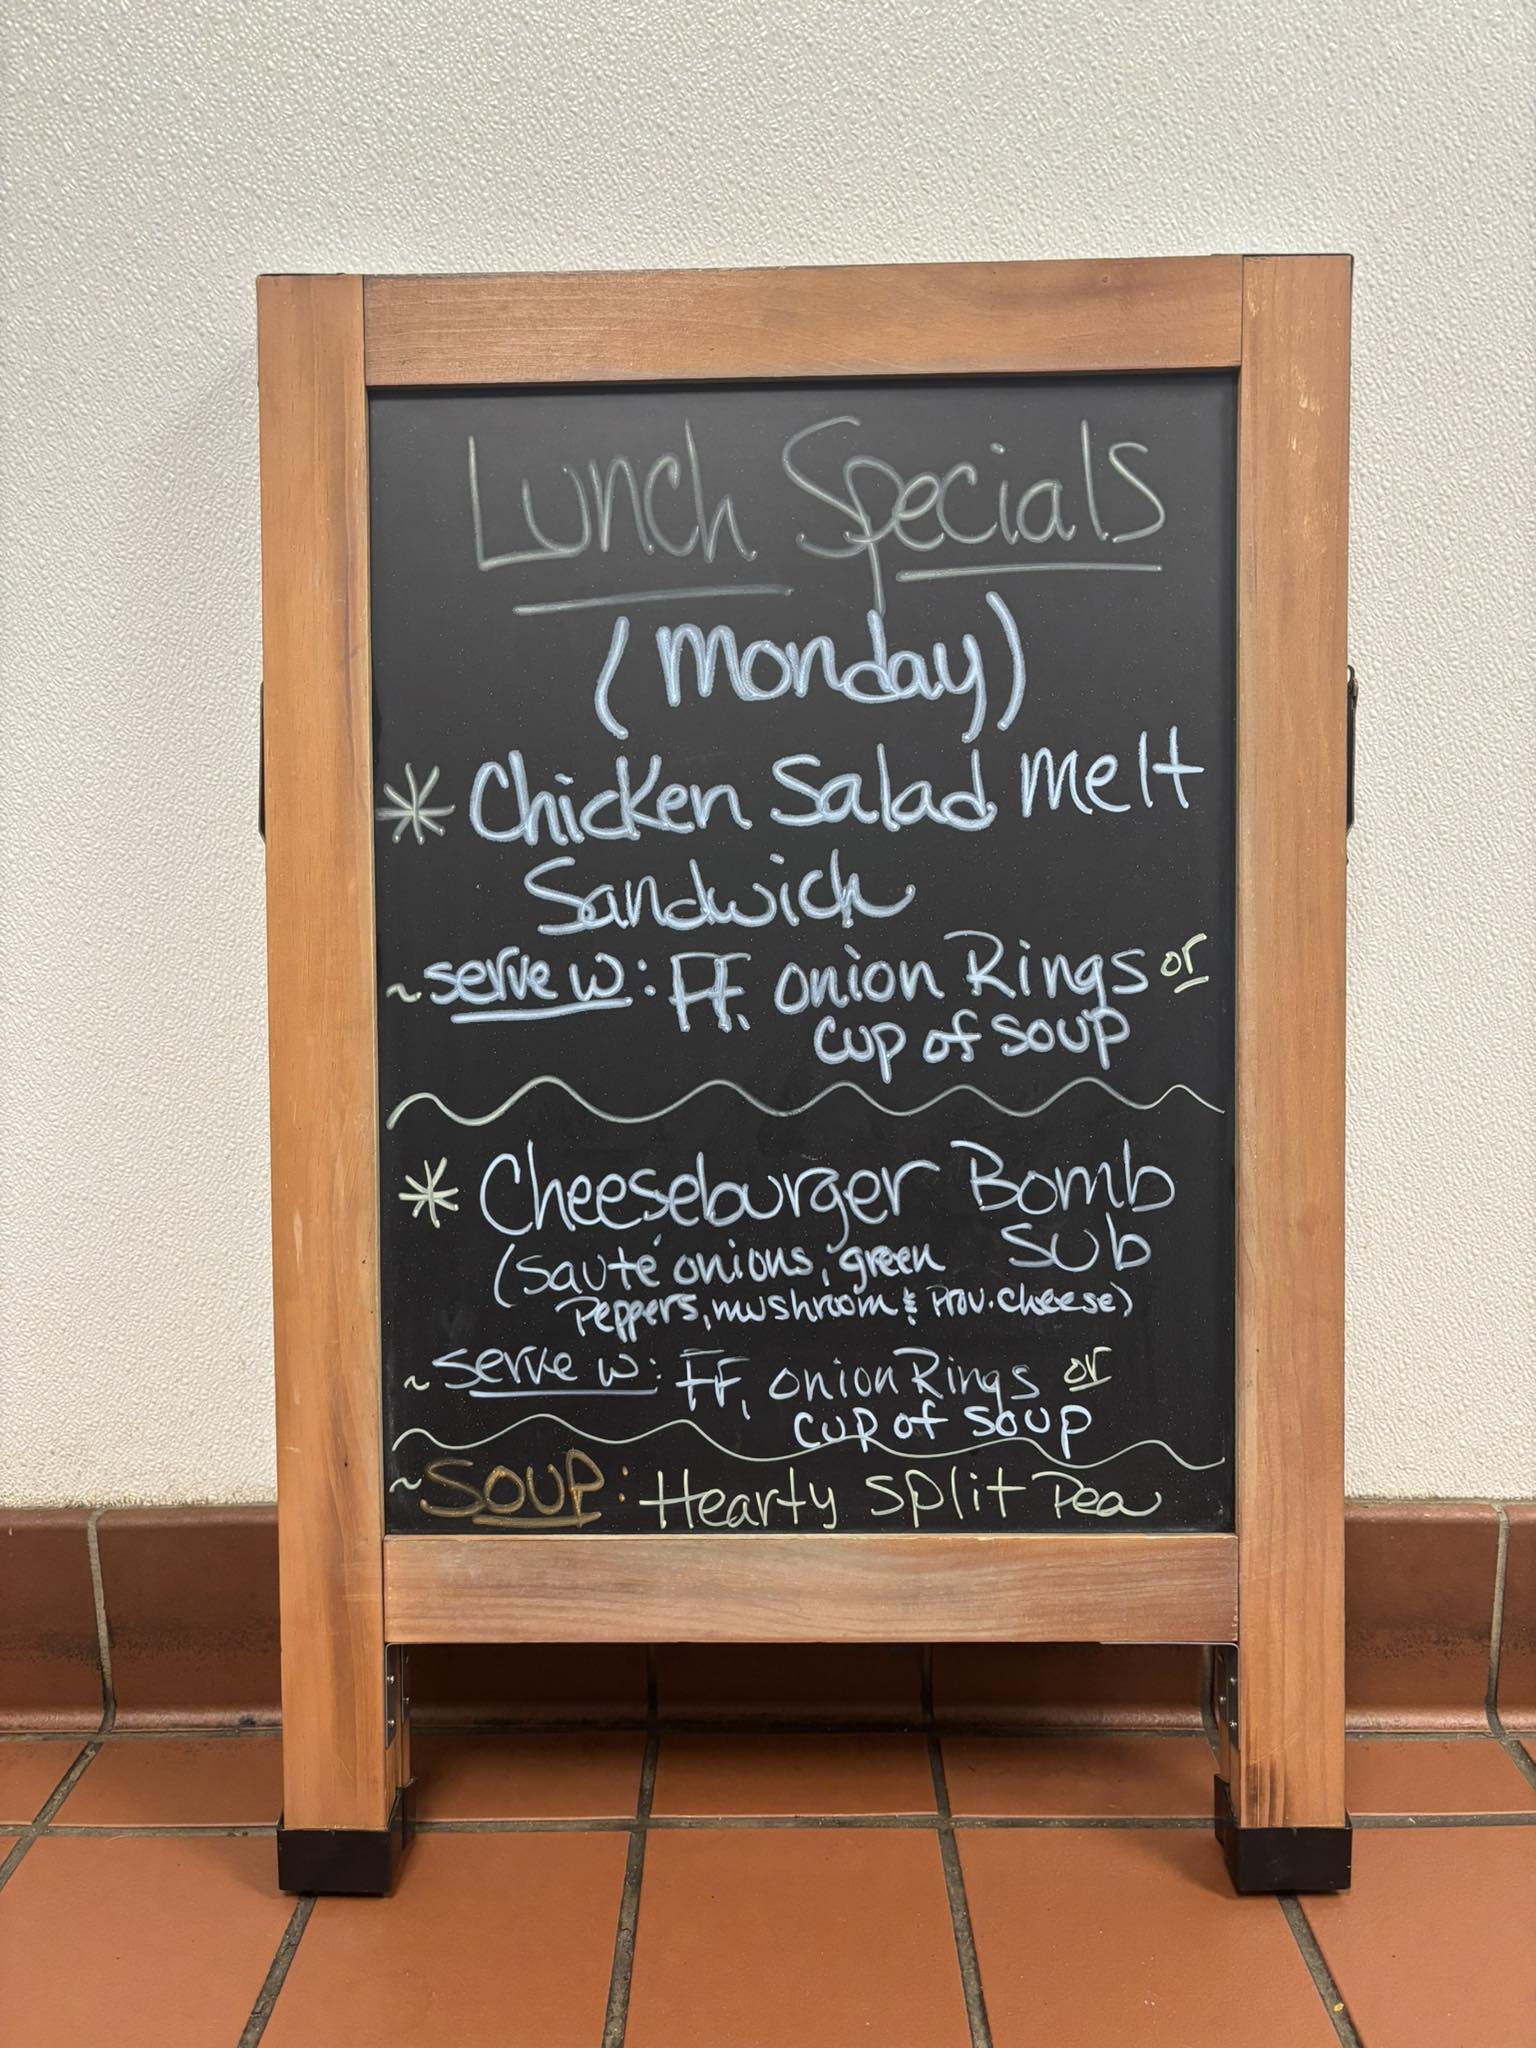 Lunch Specials
(Monday)
* Chicken Salad Melt
Sandwich
~ serve w: FF, onion Rings or
cup of soup
* Cheeseburger Bomb
Sub
(sauté onions, green
Peppers, mushroom & Prov. cheese)
~ serve w: FF, onion Rings or
cup of soup
~ SOUP: Hearty Split Pea